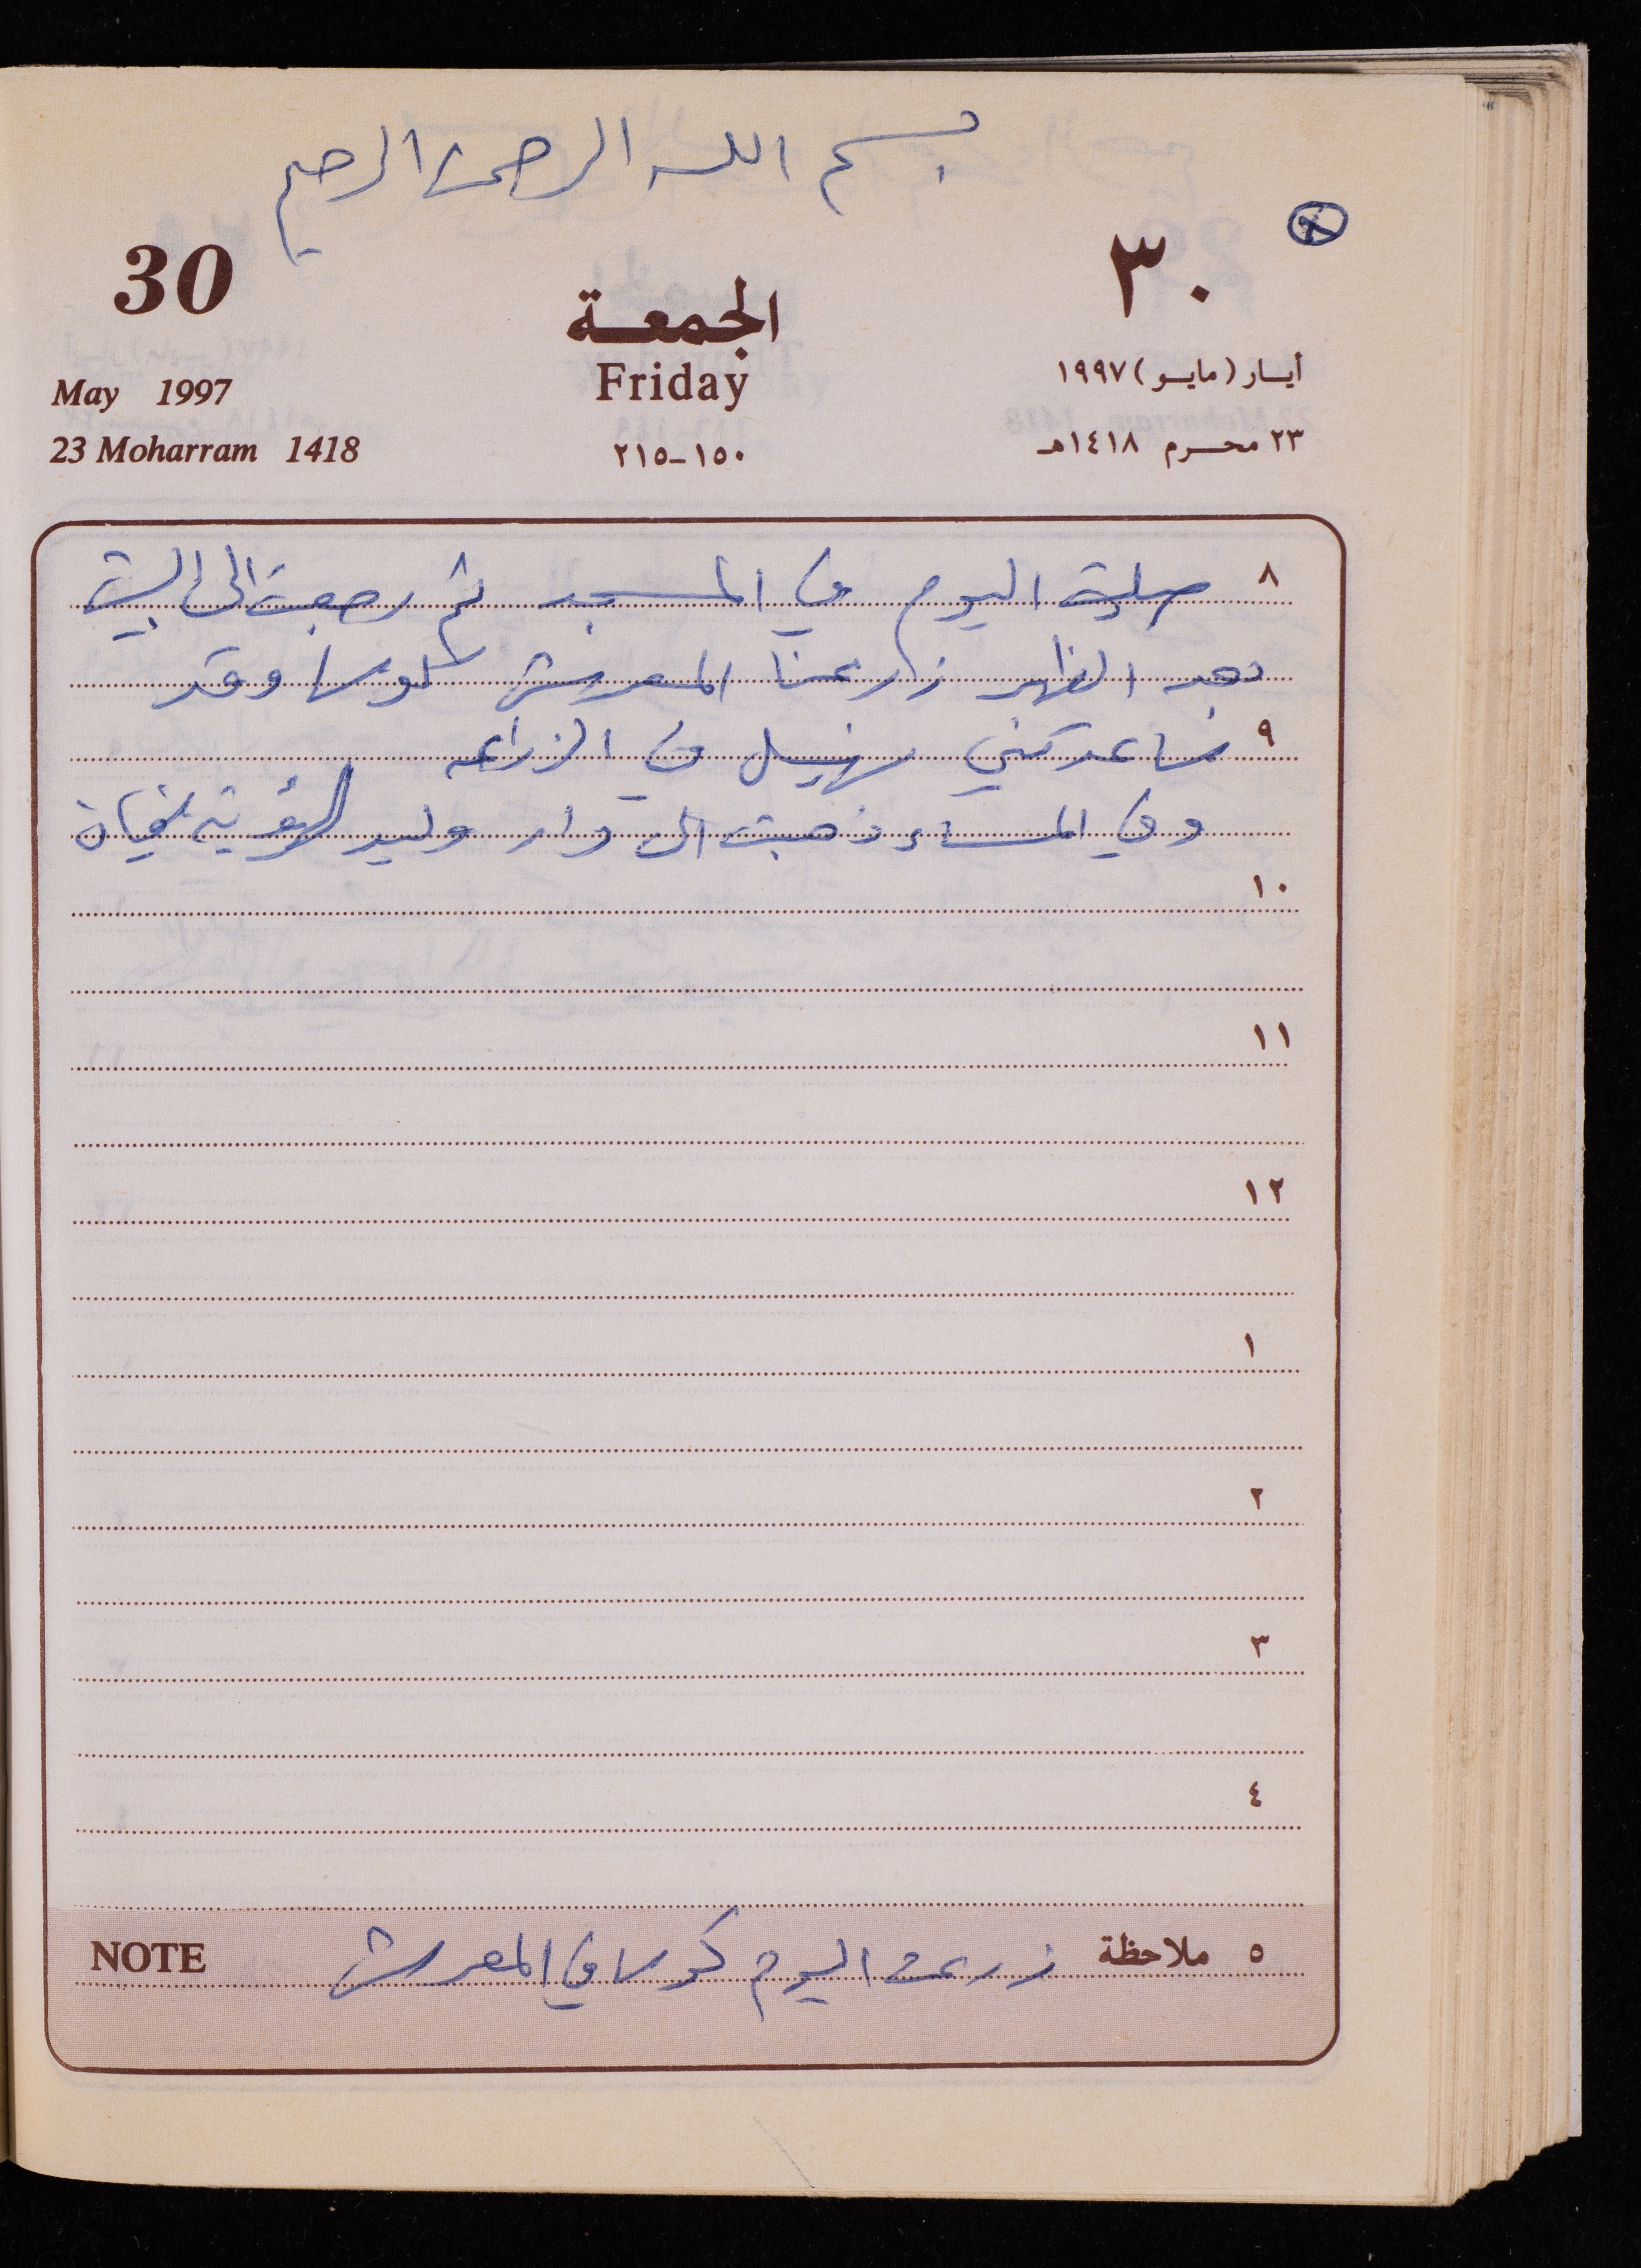 بسم الله الرحمن الرحيم
30 ٣٠
الجمعة
Friday
May 1997 أيار (مايو) ١٩٩٧
23 Moharram 1418 ١٥٠-٢١٥ ٢٣ محرم ١٤١٨هـ
٨ صليت اليوم في المسجد ثم رجعت الى البيت
بعد الظهر زارعنا المعرش كوسا وقد
٩ ساعدتني في الزراعه
وفي المساء ذهبت الى دار وليد لرؤية
١٠
١١
١٢
١
٢
٣
٤
٥ ملاحظة زرعت اليوم كوسا في المعرش NOTE